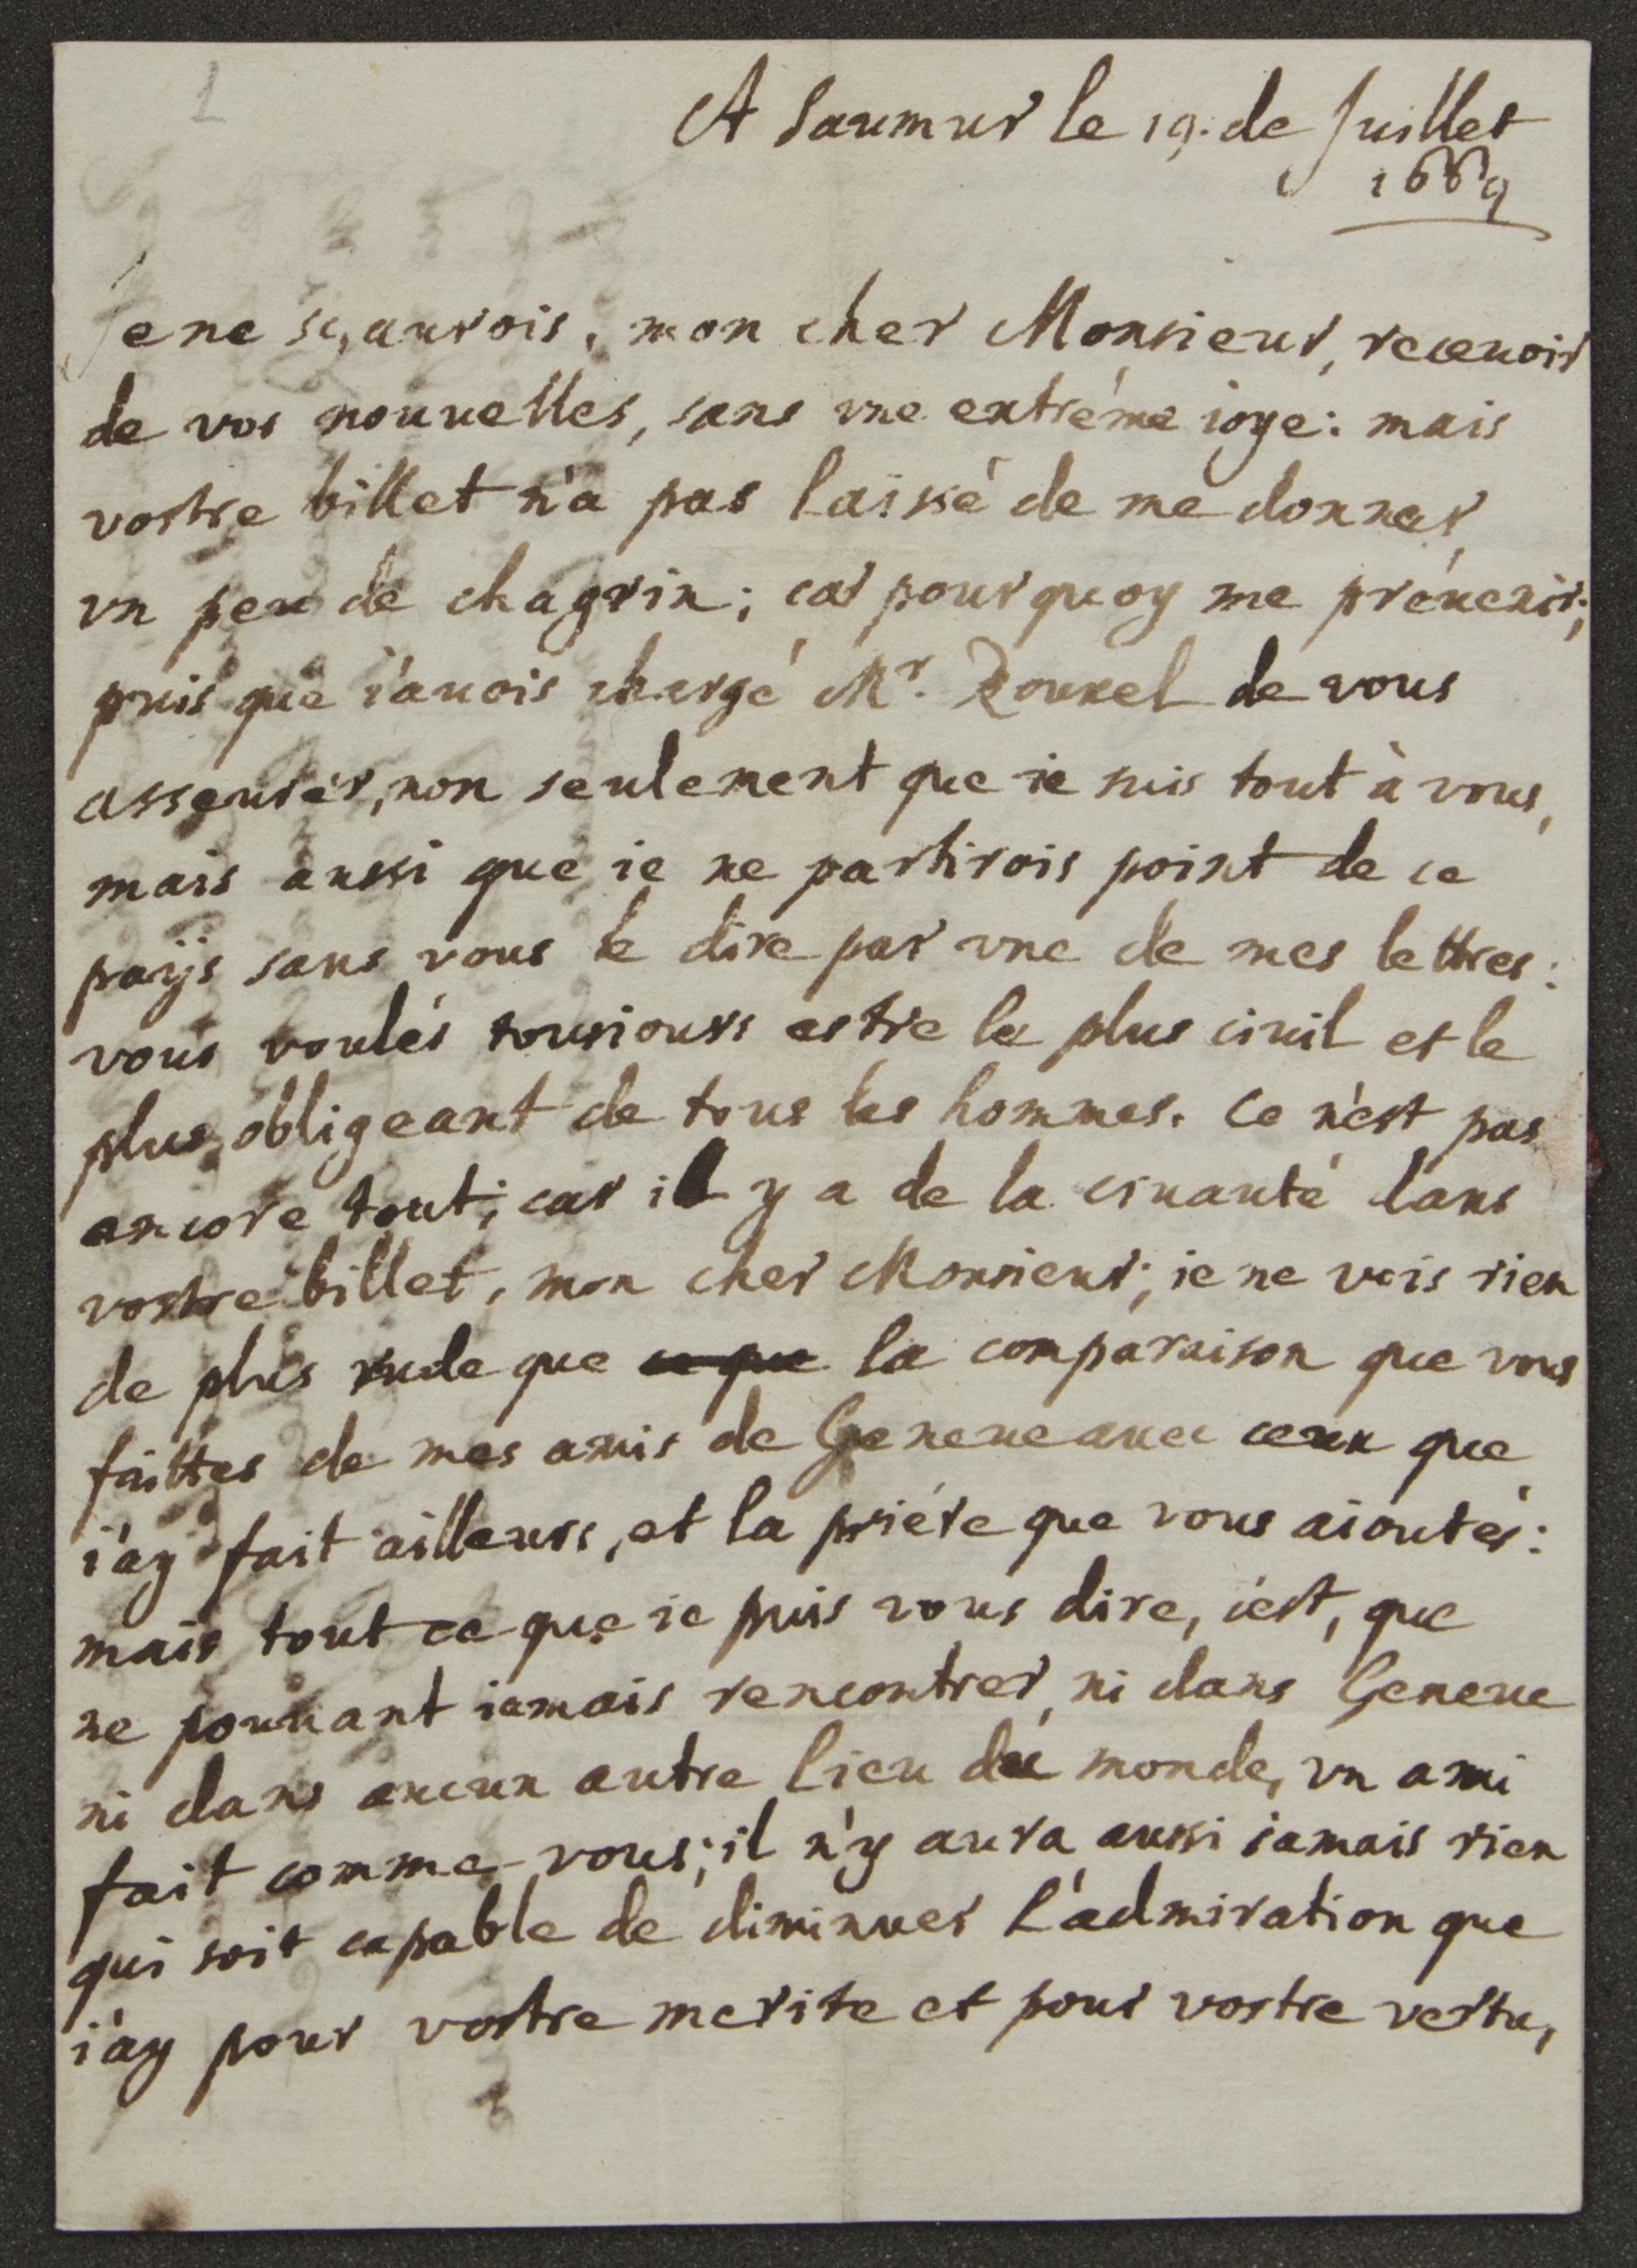 1
A Saumur le 19. de Juillet
1669
Je ne sçaurois, mon cher Monsieur, receuoir
de vos nouuelles, sans vne extréme ioye: mais
vostre billet n'a pas laissé de me donner
vn peu de chagrin; car pourquoy me préuenir;
puis que i'auois chargé Mr. Rouxel de vous
asseurer, non seulement que ie suis tout à vous,
mais aussi que ie ne partirois point de ce
païs sans vous le dire par vne de mes lettres:
vous voulés tousiours estre le plus ciuil et le
plus obligeant de tous les hommes. Ce n'est pas
encore tout; car il y a de la cruauté dans
vostre billet, mon cher Monsieur; ie ne vois rien
de plus rude que ce que la comparaison que vous
faittes de mes amis de Geneue auec ceux que
i'ay fait ailleurs, et la priére que vous aioutés:
mais tout ce que ie puis vous dire, c'est, que
ne pouuant iamais rencontrer, ni dans Geneue
ni dans aucun autre lieu du monde, vn ami
fait comme vous; il n'y aura aussi iamais rien
qui soit capable de diminuer l'admiration que
i'ay pour vostre merite et pour vostre vertu,